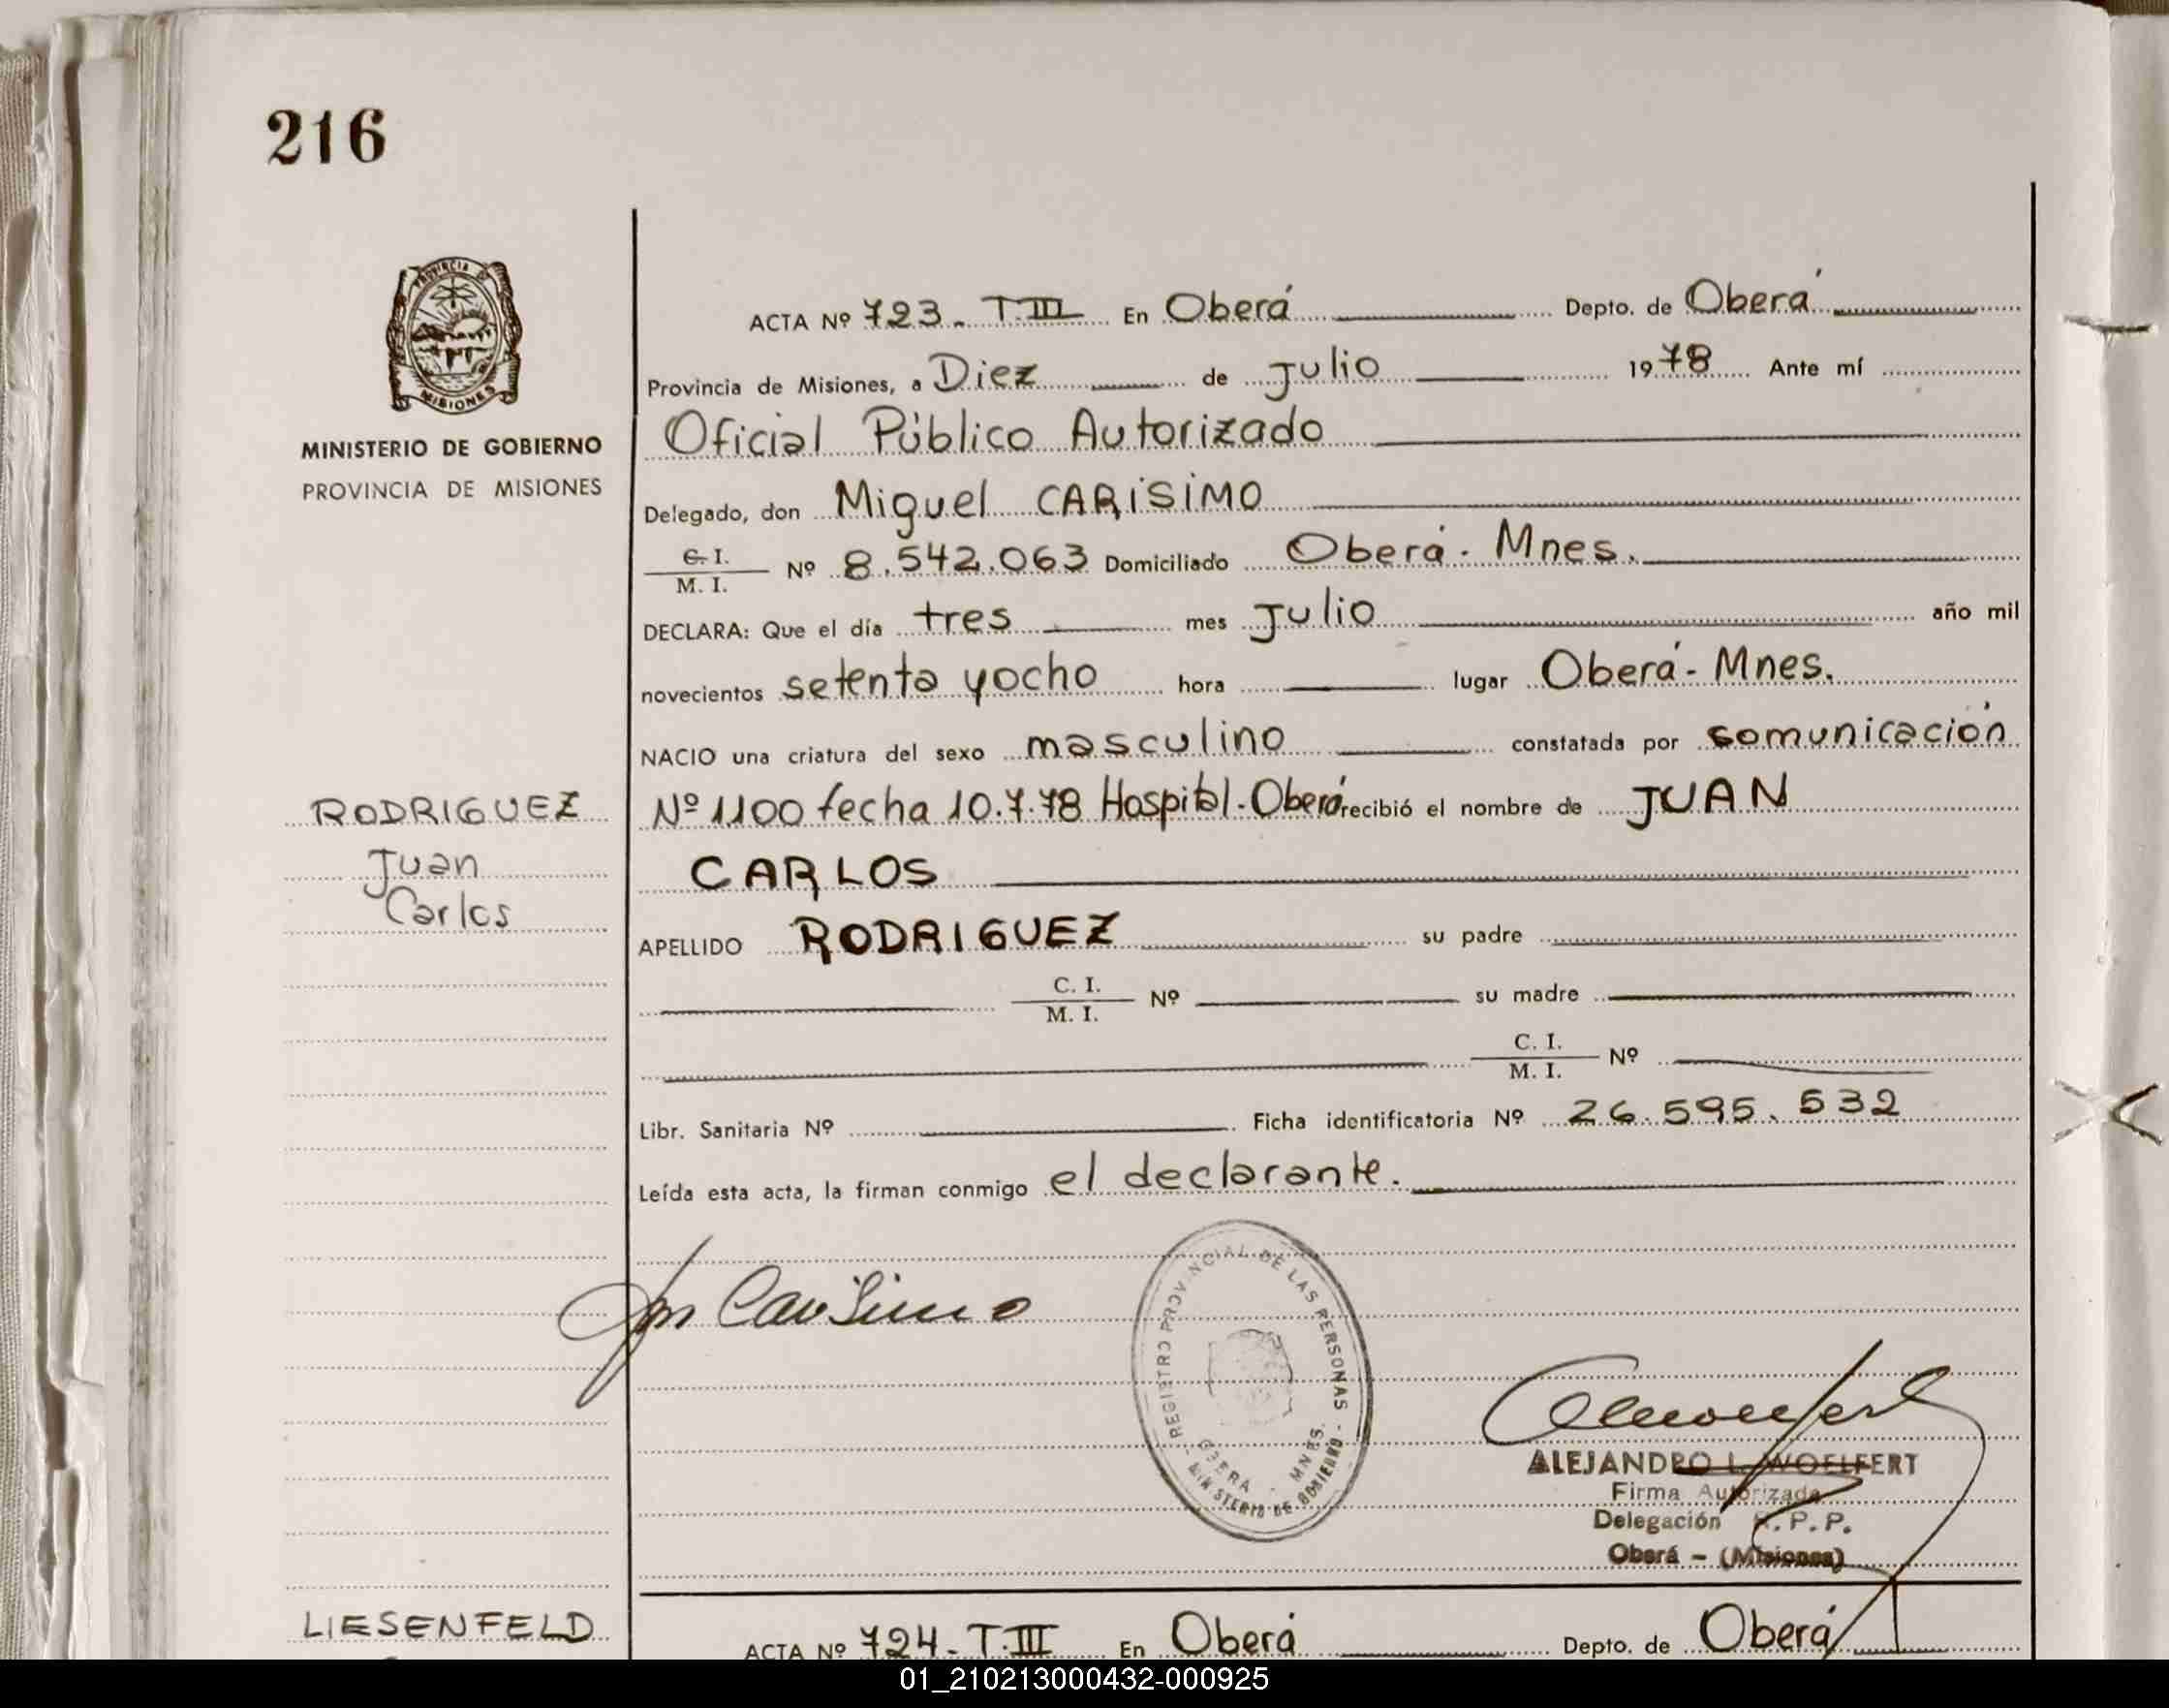 216
PROVINCIA DE
MISIONES
MINISTERIO DE GOBIERNO
PROVINCIA DE MISIONES
ACTA Nº 723 - T.III En Oberá Depto. de Oberá
Provincia de Misiones, a Diez de julio 1978 Ante mí
Oficial Público Autorizado
Delegado, don Miguel CARISIMO
C. I.
M. I. Nº 8.542.063 Domiciliado Oberá - Mnes.
DECLARA: Que el día tres mes julio año mil
novecientos setenta y ocho hora lugar Oberá - Mnes.
NACIO una criatura del sexo masculino constatada por comunicación
Nº 1100 fecha 10.7.78 Hospital - Oberá recibió el nombre de JUAN
CARLOS
APELLIDO RODRIGUEZ su padre
C. I.
M. I. Nº su madre
C. I.
M. I. Nº
Libr. Sanitaria Nº Ficha identificatoria Nº 26.595.532
Leída esta acta, la firman conmigo el declarante.
RODRIGUEZ
Juan
Carlos
Carisimo
REGISTRO PROVINCIAL DE LAS PERSONAS -
OBERA - MNES.
MINISTERIO DE GOBIERNO -
ALEJANDRO L. WOELFERT
Firma Autorizada
Delegación R.P.P.
Oberá - (Misiones)
LIESENFELD
ACTA Nº 724 - T.III En Oberá Depto. de Oberá
01_210213000432-000925